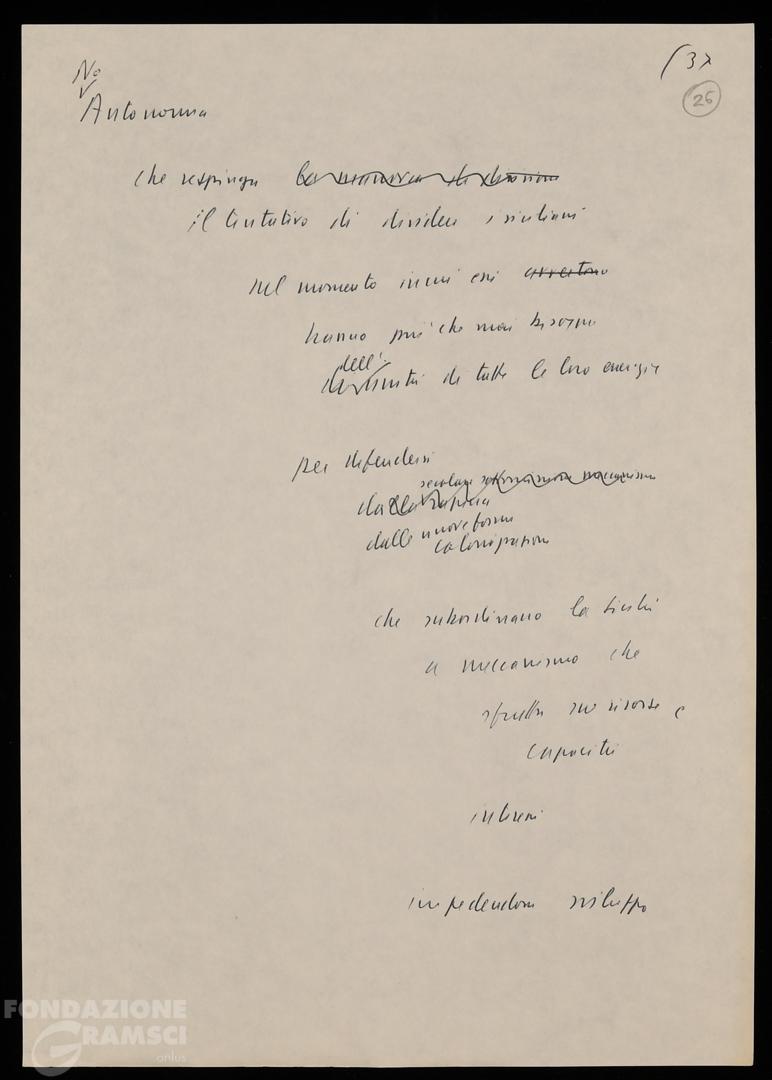 No
(37
25
Autonomia
che respinga la manovra di divisione
il tentativo di dividere i siciliani
nel momento in cui essi avvertono
hanno più che mai bisogno
dell'
unità di tutte le loro energie
per difendersi
secolare meccanismo
dalla rapina
dalle nuove forme
colonizzazione
che subordinano la Sicilia
a meccanismo che
sfrutta sue risorse e
capacità
interessi
impedendone sviluppo
FONDAZIONE
GRAMSCI
onlus